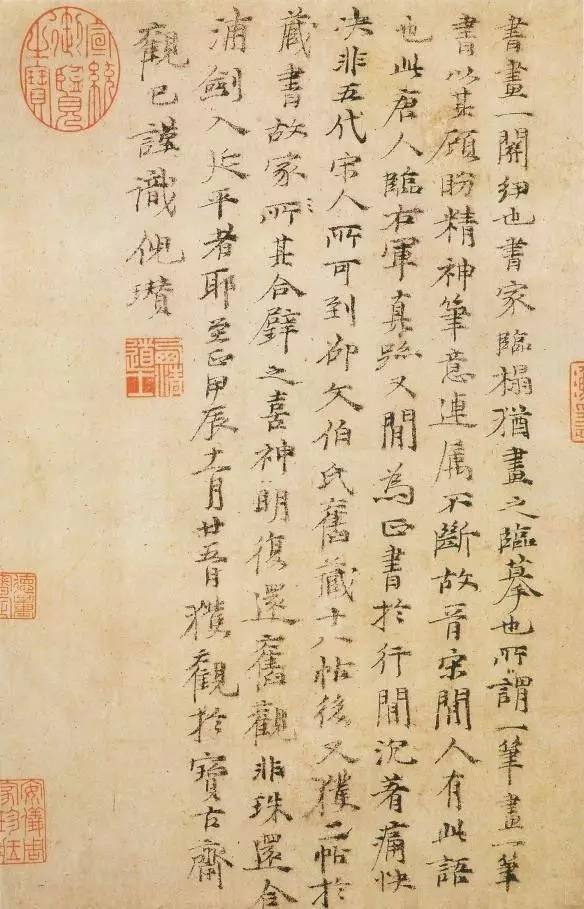 書畫一關紐也書家臨搨猶畫之臨摹也所謂一筆畫一筆
書以其顧盼精神筆意連属不斷故晉宋間人有此語
也此唐人臨右軍真跡又間為正書於行間沉著痛快
決非五代宋人所可到郤文伯氏舊藏十八帖後又獲二帖於
藏書故家所其合璧之喜神明復還舊觀非珠還合
浦劍入延平者耶至正甲辰十一月廿五日獲觀於寶古齋
觀已謹識倪瓚
宣統御覽之寶
安儀周家珍藏